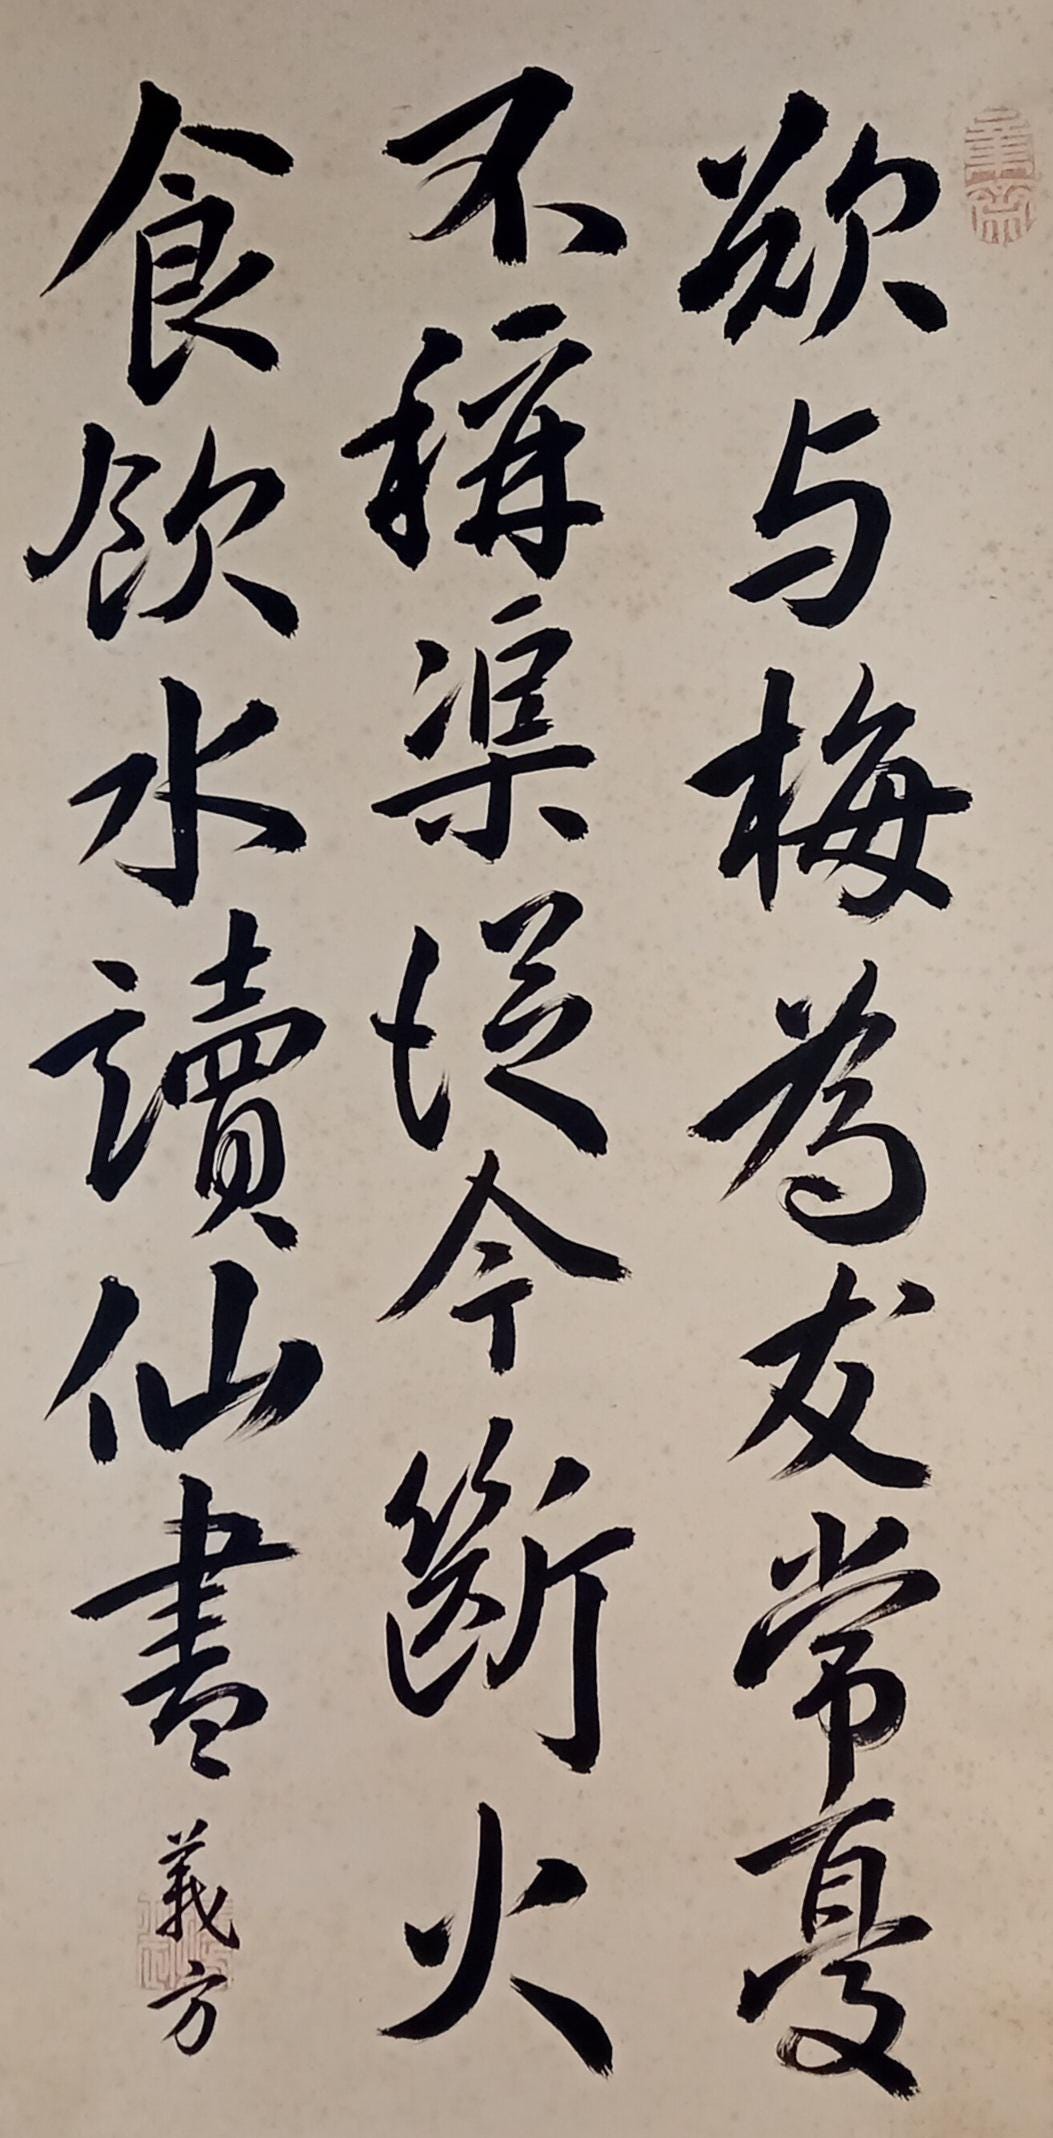 欲与梅為友常憂
不稱渠從今断火
食飲水讀仙書
義方